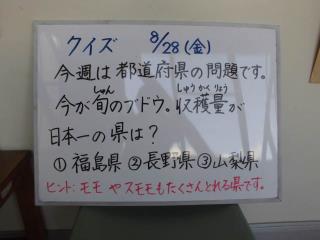 クイズ 8/28(金)
今週は都道府県の問題です。
しゅん しゅうかくりょう
今が旬のブドウ。収穫量が
日本一の県は?
① 福島県 ② 長野県 ③ 山梨県
ヒント: モモ や スモモもたくさんとれる県です。